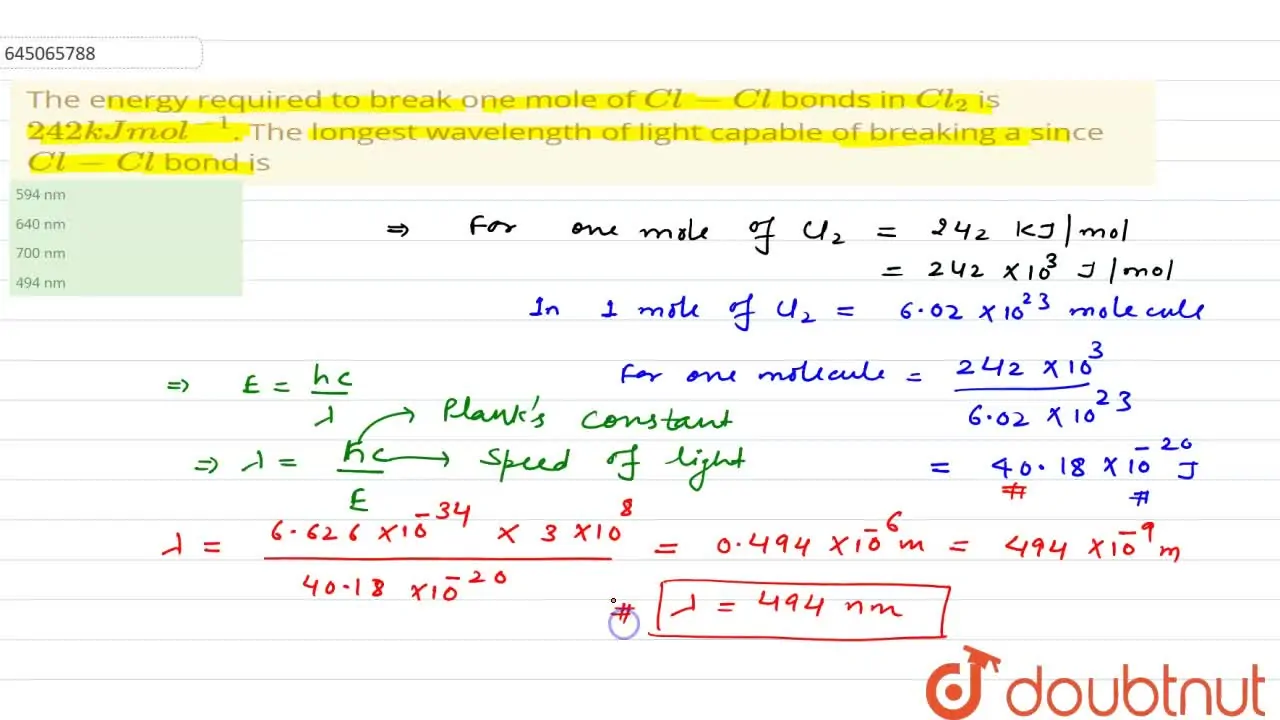 645065788
The energy required to break one mole of Cl − Cl bonds in Cl₂ is
242kJmol⁻¹. The longest wavelength of light capable of breaking a since
Cl − Cl bond is
594 nm
640 nm
700 nm
494 nm
⇒ For one mole of Cl₂ = 242 KJ/mol
= 242 × 10³ J/mol
In 1 mole of Cl₂ = 6.02 × 10²³ molecule
For one molecule = 242 × 10³ / 6.02 × 10²³
= 40.18 × 10⁻²⁰ J
⇒ E = hc / λ
Plank's constant
⇒ λ = hc / E → speed of light
λ = 6.626 × 10⁻³⁴ × 3 × 10⁸ / 40.18 × 10⁻²⁰ = 0.494 × 10⁻⁶ m = 494 × 10⁻⁹ m
# λ = 494 nm
doubtnut